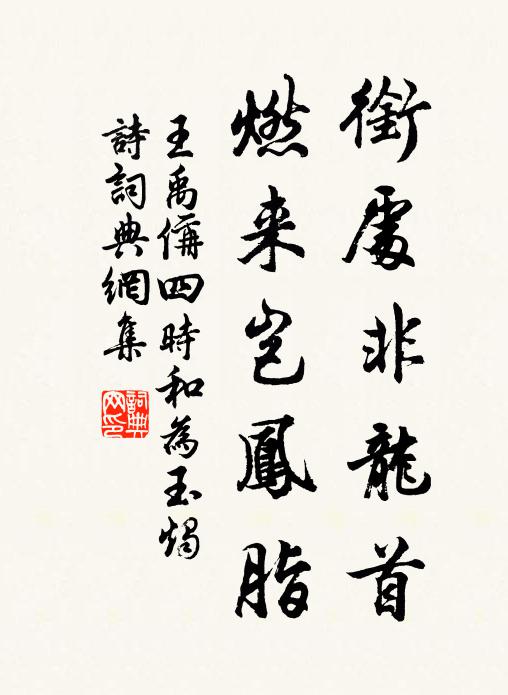 銜處非龍首
燃来岂鳳脂
王禹偁四時和為玉燭
詩詞典網集
詞典
网印